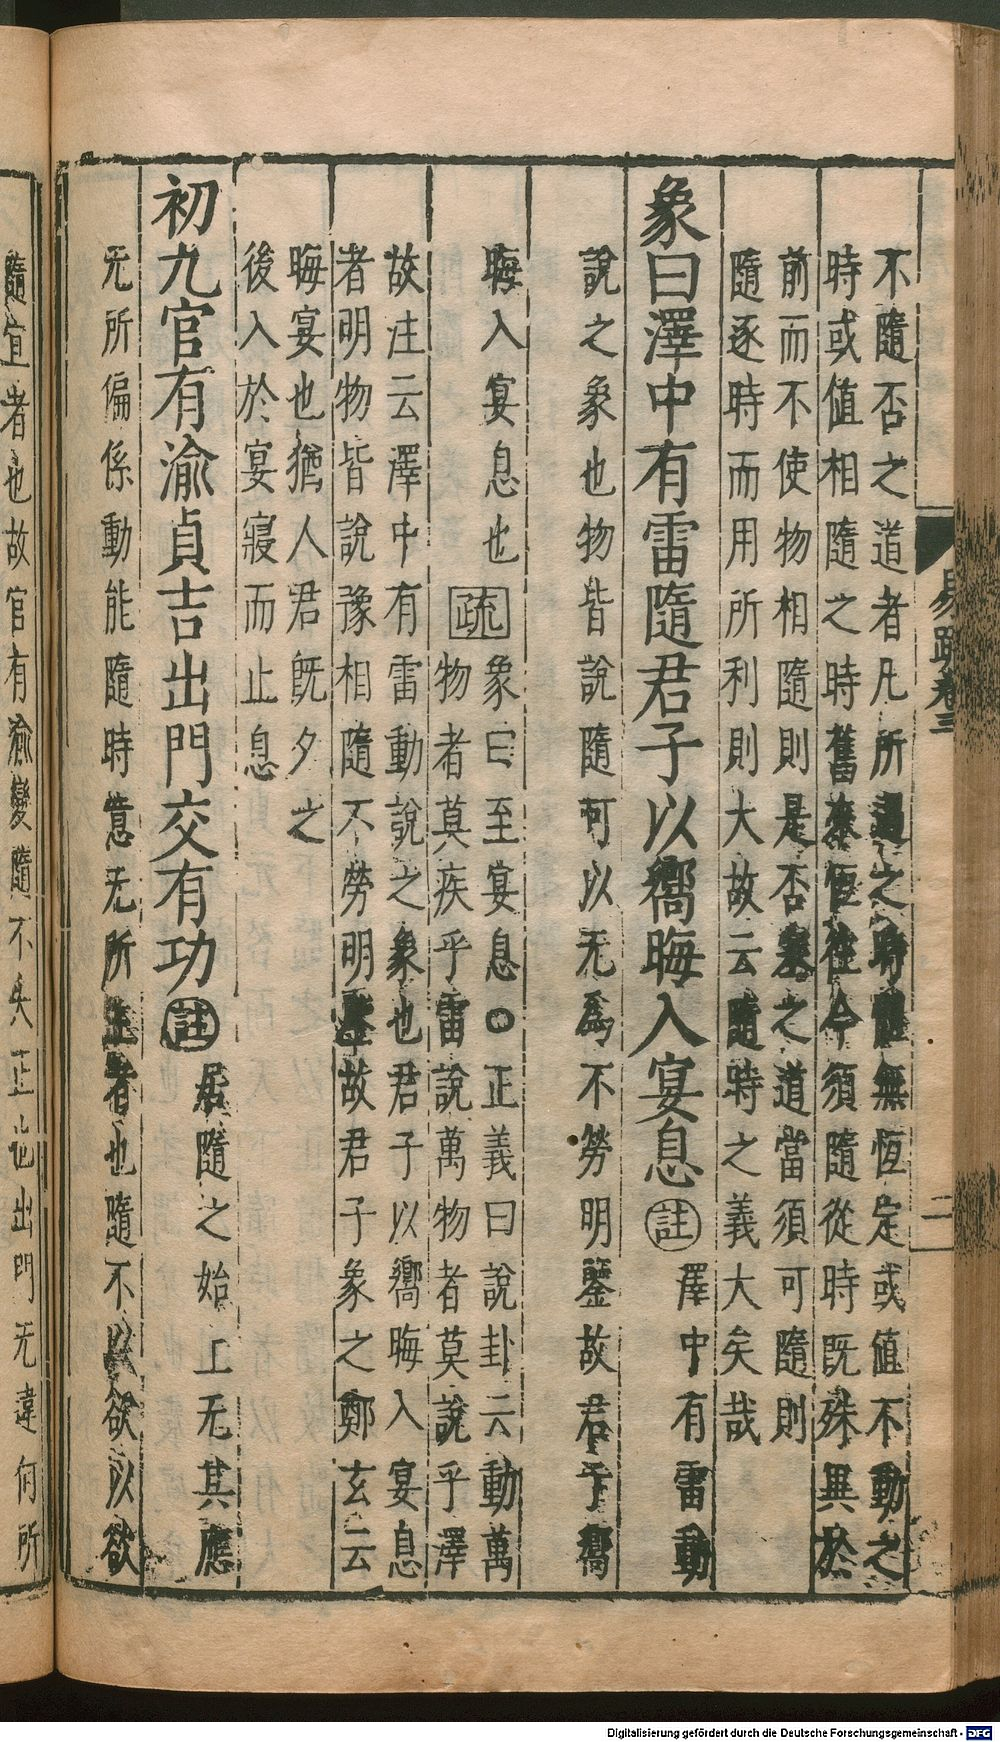 易疏卷三
二
不隨否之道者凡所遇之時體無恆定或值不動之
時或值相隨之時舊來恆往今須隨從時既殊異於
前而不使物相隨則是否塞之道當須可隨則
隨逐時而用所利則大故云隨時之義大矣哉
象曰澤中有雷隨君子以嚮晦入宴息註澤中有雷動
說之象也物皆說隨可以无為不勞明鑒故君子嚮
晦入宴息也疏象曰至宴息○正義曰說卦云動萬
物者莫疾乎雷說萬物者莫說乎澤
故注云澤中有雷動說之象也君子以嚮晦入宴息
者明物皆說豫相隨不勞明鑒故君子象之鄭玄云
晦宴也猶人君既夕之
後入於宴寢而止息
初九官有渝貞吉出門交有功註居隨之始上无其應
无所偏係動能隨時意无所主者也隨不以欲以欲
隨宜者也故官有渝變隨不失正也出門无違何所
Digitalisierung gefördert durch die Deutsche Forschungsgemeinschaft - DFG